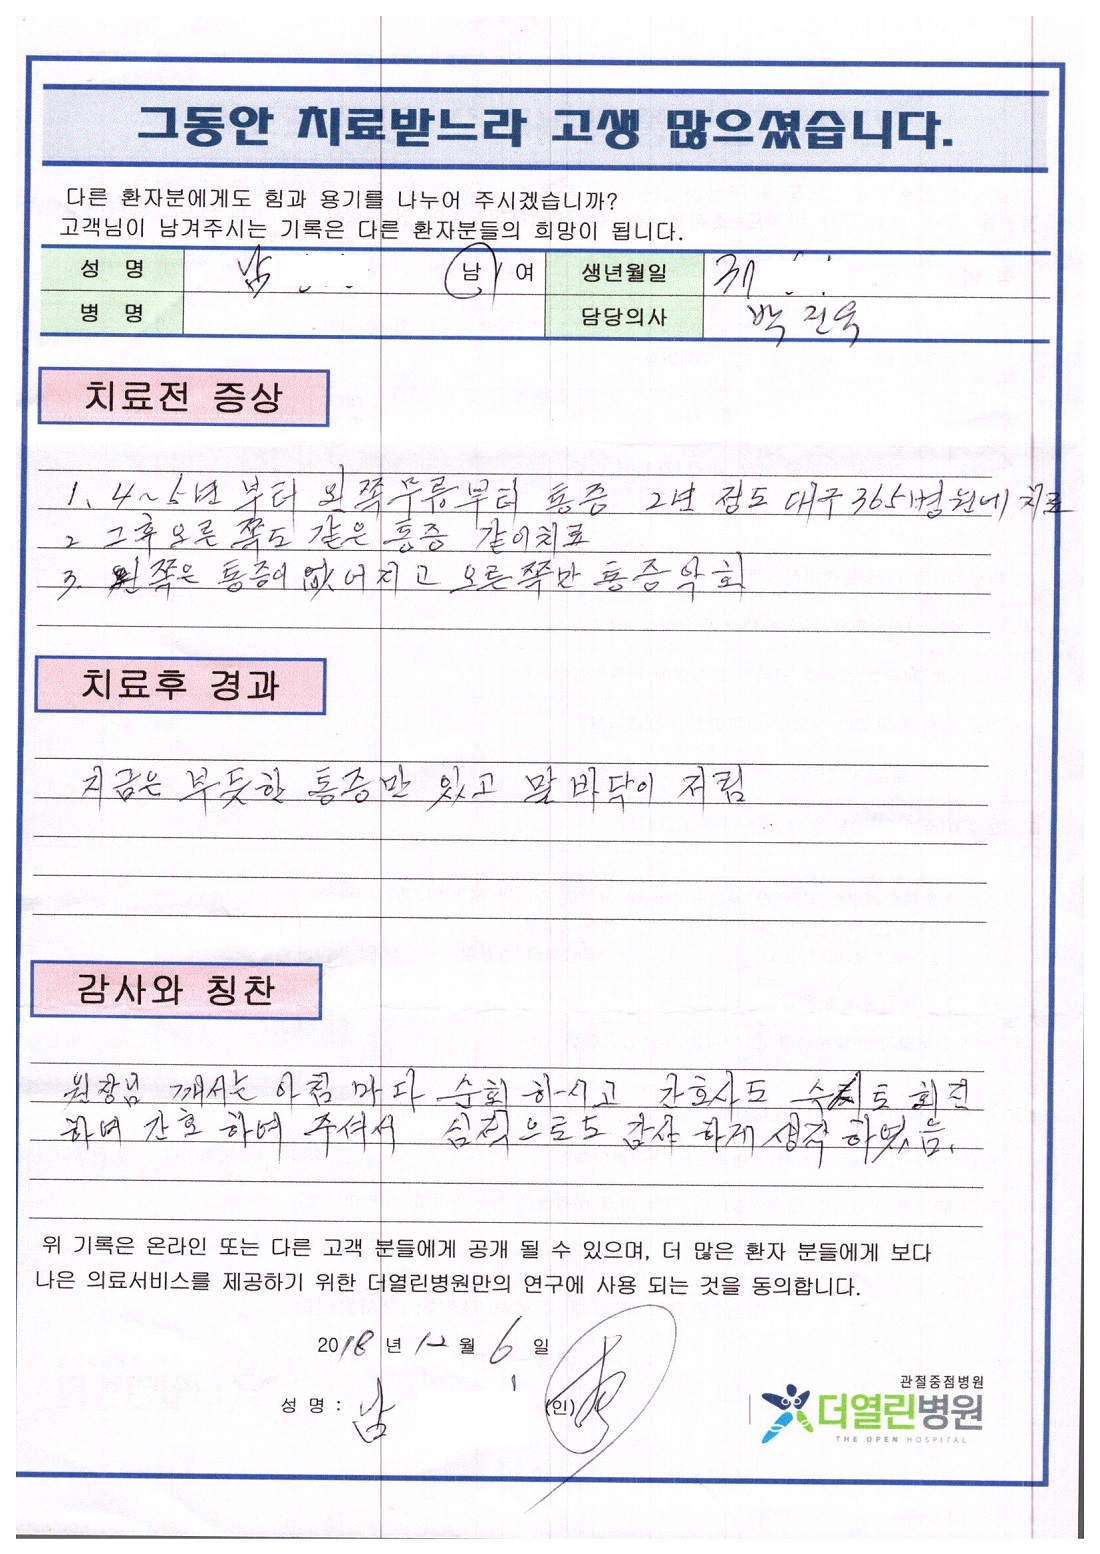 그동안 치료받느라 고생 많으셨습니다.
다른 환자분에게도 힘과 용기를 나누어 주시겠습니까?
고객님이 남겨주시는 기록은 다른 환자분들의 희망이 됩니다.
성 명 남 남 / 여 생년월일
병 명 담당의사 박진욱
치료전 증상
1. 4~5년 부터 왼쪽무릎부터 통증 2년 정도 대구 365병원에 치료
2 그후 오른쪽도 같은 통증 같이치료
3. 왼쪽은 통증이 없어지고 오른쪽만 통증악화
치료후 경과
지금은 부듯한 통증만 있고 발바닥이 저림
감사와 칭찬
원장님 께서는 아침 마다 순회 하시고 간호사도 수시로 회진
하며 간호 하여 주셔서 심적으로도 감사 하게 생각 하였음.
위 기록은 온라인 또는 다른 고객 분들에게 공개 될 수 있으며, 더 많은 환자 분들에게 보다
나은 의료서비스를 제공하기 위한 더열린병원만의 연구에 사용 되는 것을 동의합니다.
2018 년 12 월 6 일
성 명 : 남 (인)
관절중점병원
더열린병원
THE OPEN HOSPITAL